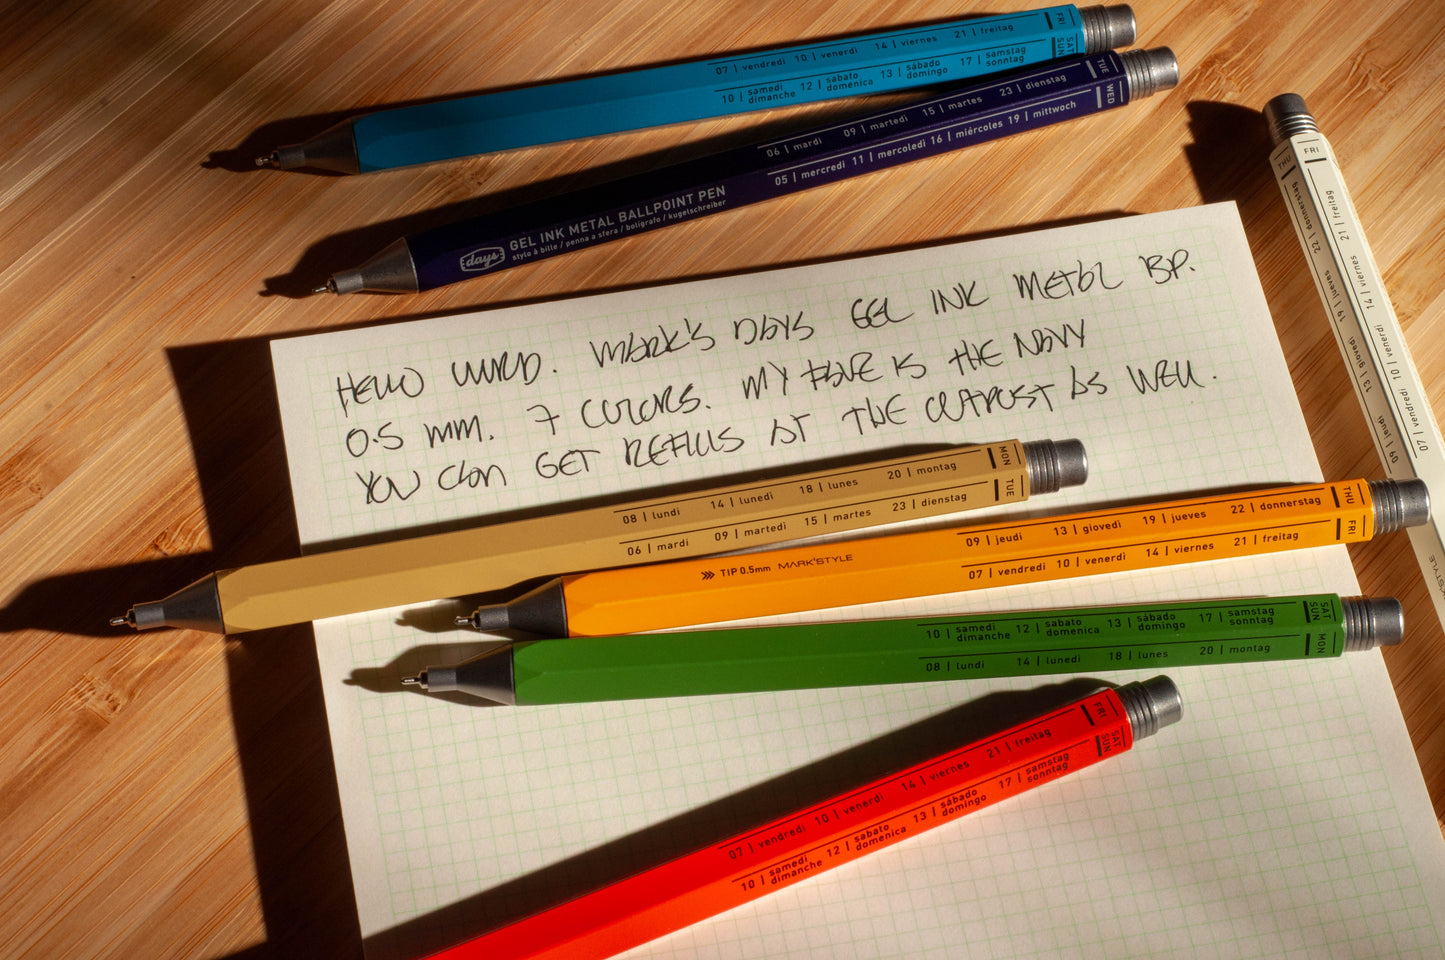 FRI
07 | vendredi 10 | venerdì 14 | viernes 21 | freitag
SAT SUN
10 | samedi dimanche 12 | sabato domenica 13 | sábado domingo 17 | samstag sonntag
TUE
06 | mardi 09 | martedì 15 | martes 23 | dienstag
WED
05 | mercredi 11 | mercoledì 16 | miércoles 19 | mittwoch
days GEL INK METAL BALLPOINT PEN
stylo à bille / penna a sfera / bolígrafo / kugelschreiber
THU
09 | jeudi 13 | giovedì 19 | jueves 22 | donnerstag
FRI
07 | vendredi 10 | venerdì 14 | viernes 21 | freitag
HELLO WORLD. MARK'S DAYS GEL INK METAL BP.
0.5 MM. 7 COLORS. MY FAVE IS THE NAVY
YOU CAN GET REFILLS AT THE OUTPOST AS WELL.
MON
08 | lundi 14 | lunedì 18 | lunes 20 | montag
TUE
06 | mardi 09 | martedì 15 | martes 23 | dienstag
THU
09 | jeudi 13 | giovedì 19 | jueves 22 | donnerstag
FRI
07 | vendredi 10 | venerdì 14 | viernes 21 | freitag
TIP 0.5mm MARK'STYLE
SAT SUN
10 | samedi dimanche 12 | sabato domenica 13 | sábado domingo 17 | samstag sonntag
MON
08 | lundi 14 | lunedì 18 | lunes 20 | montag
FRI
07 | vendredi 10 | venerdì 14 | viernes 21 | freitag
SAT SUN
10 | samedi dimanche 12 | sabato domenica 13 | sábado domingo 17 | samstag sonntag